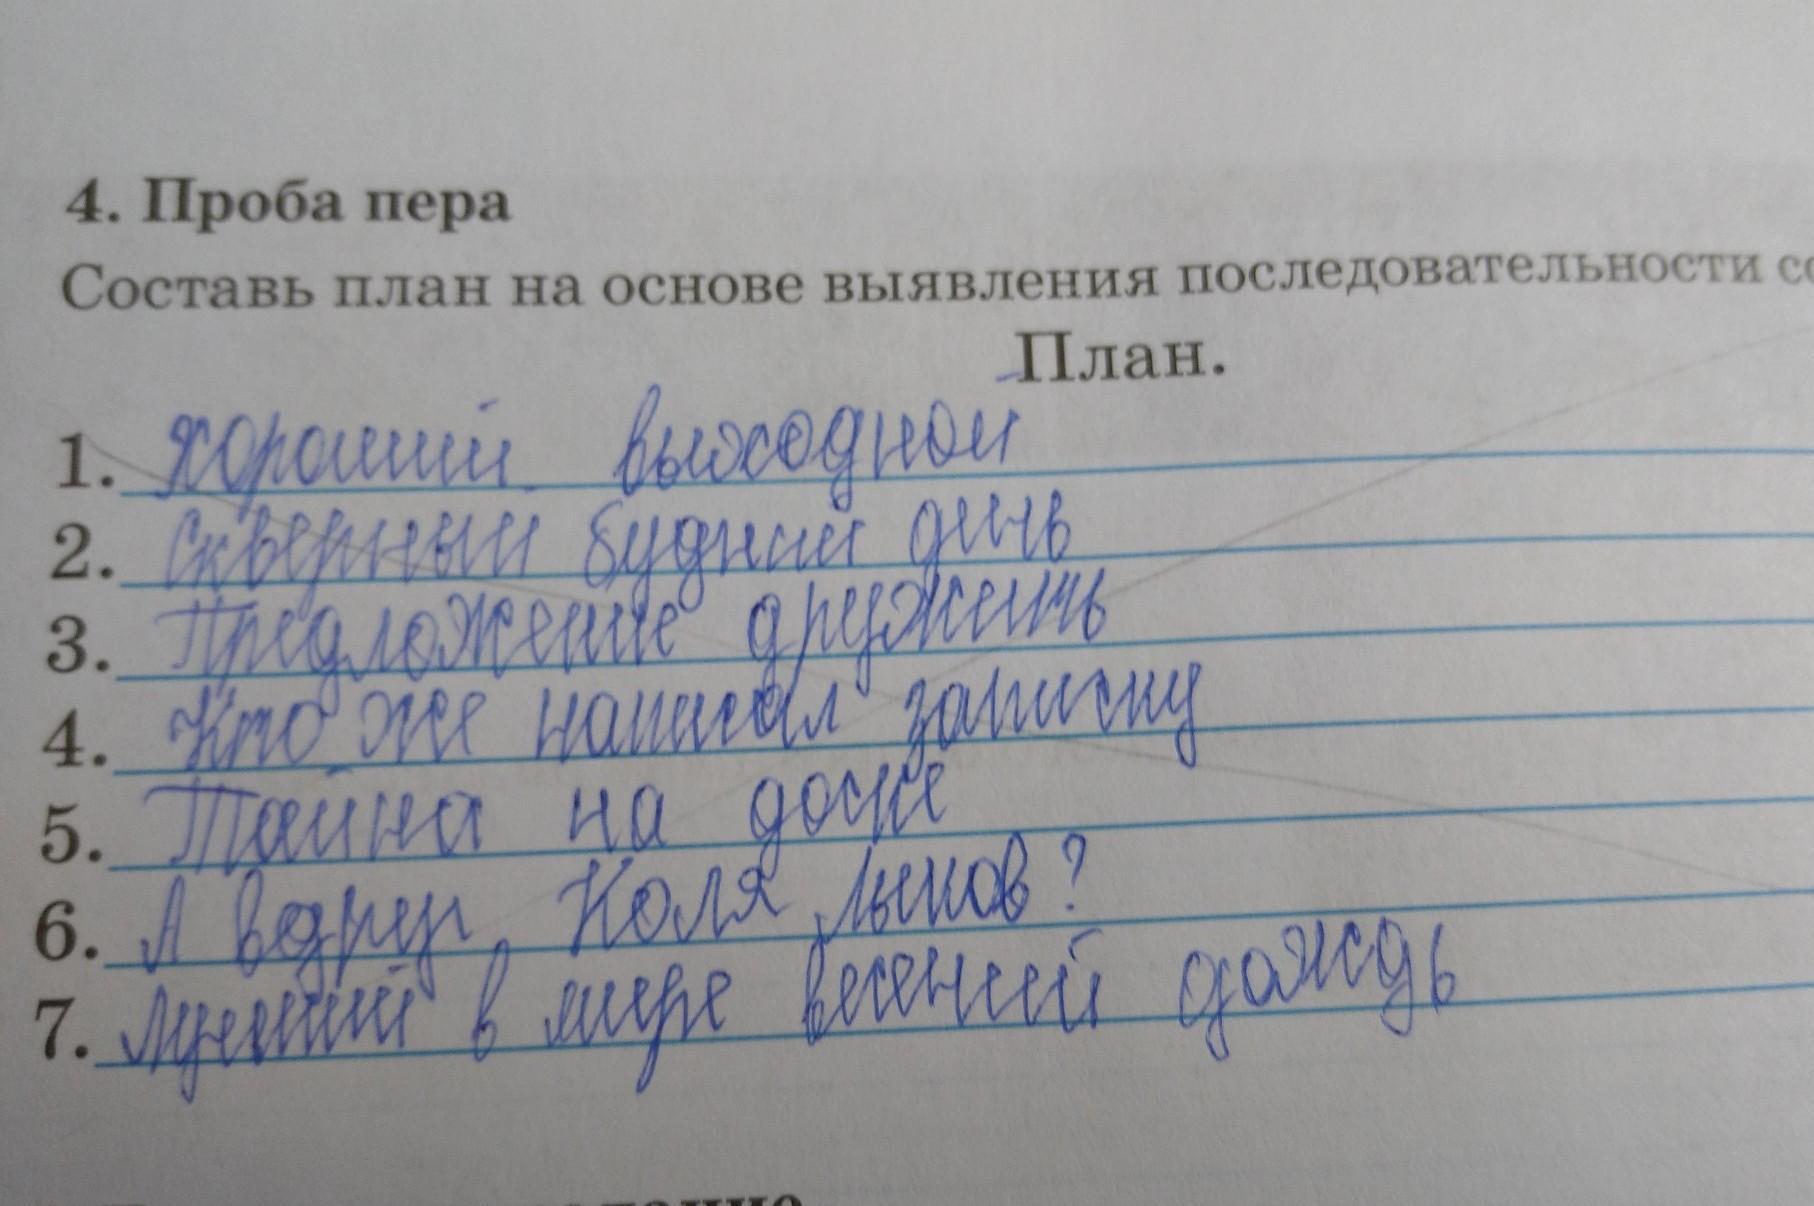 4. Проба пера
Составь план на основе выявления последовательности со
План.
1. Хороший выходной
2. Скверный будний день
3. Предложение дружить
4. Кто же написал записку
5. Тайна на доске
6. А вдруг, Коля Лыков?
7. Лучший в мире весений дождь